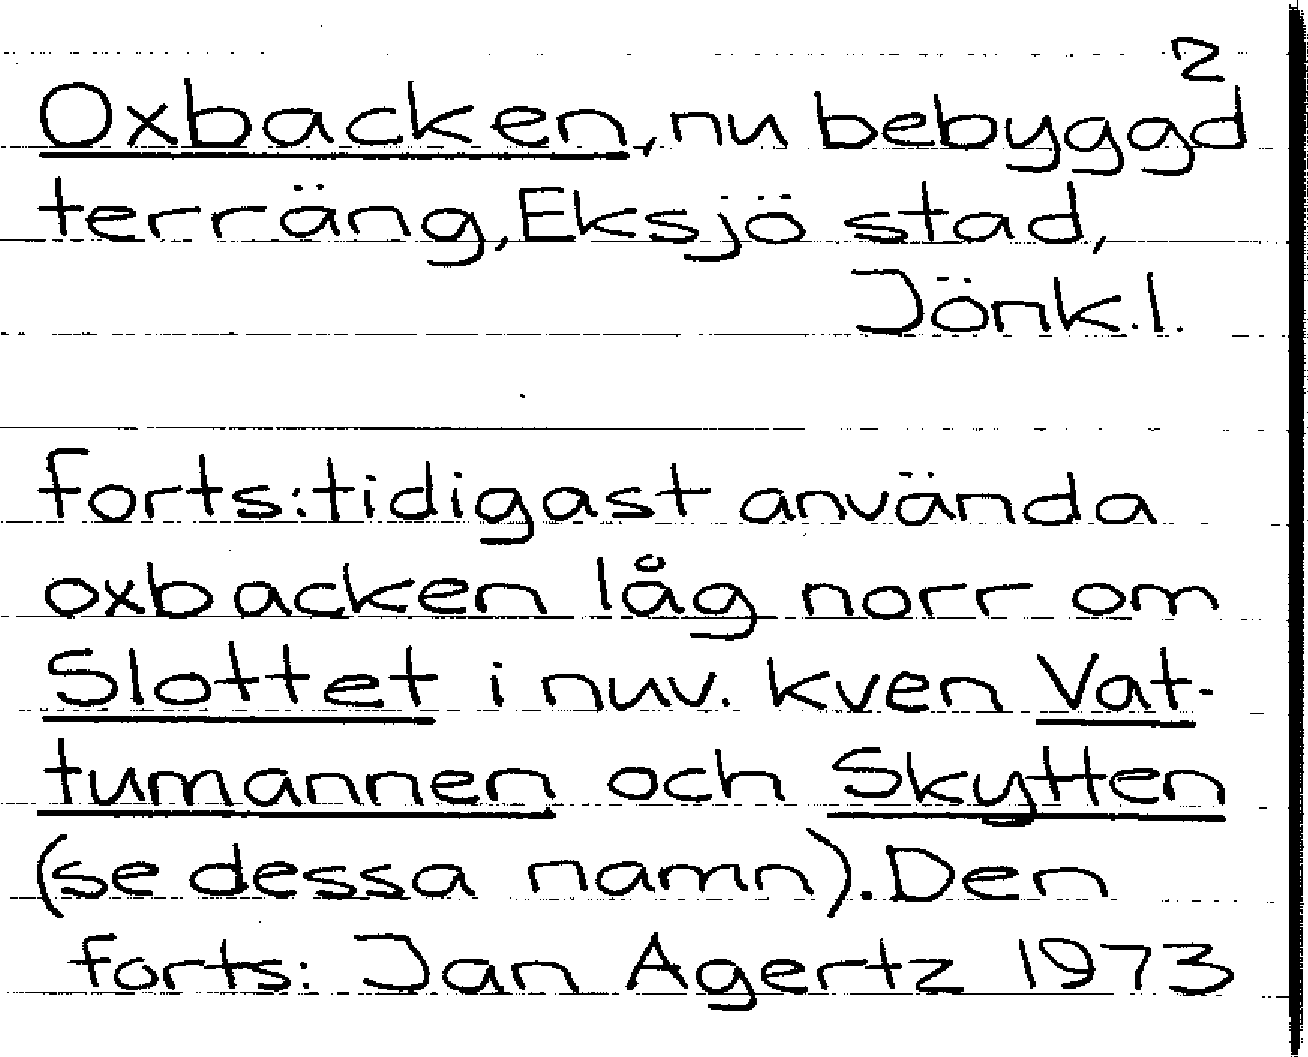 2
Oxbacken, nu bebyggd
terräng, Eksjö stad,
Jönk.l.
forts: tidigast använda
oxbacken låg norr om
Slottet i nuv. kven Vat-
tumannen och Skytten
(se dessa namn). Den
forts: Jan Agertz 1973